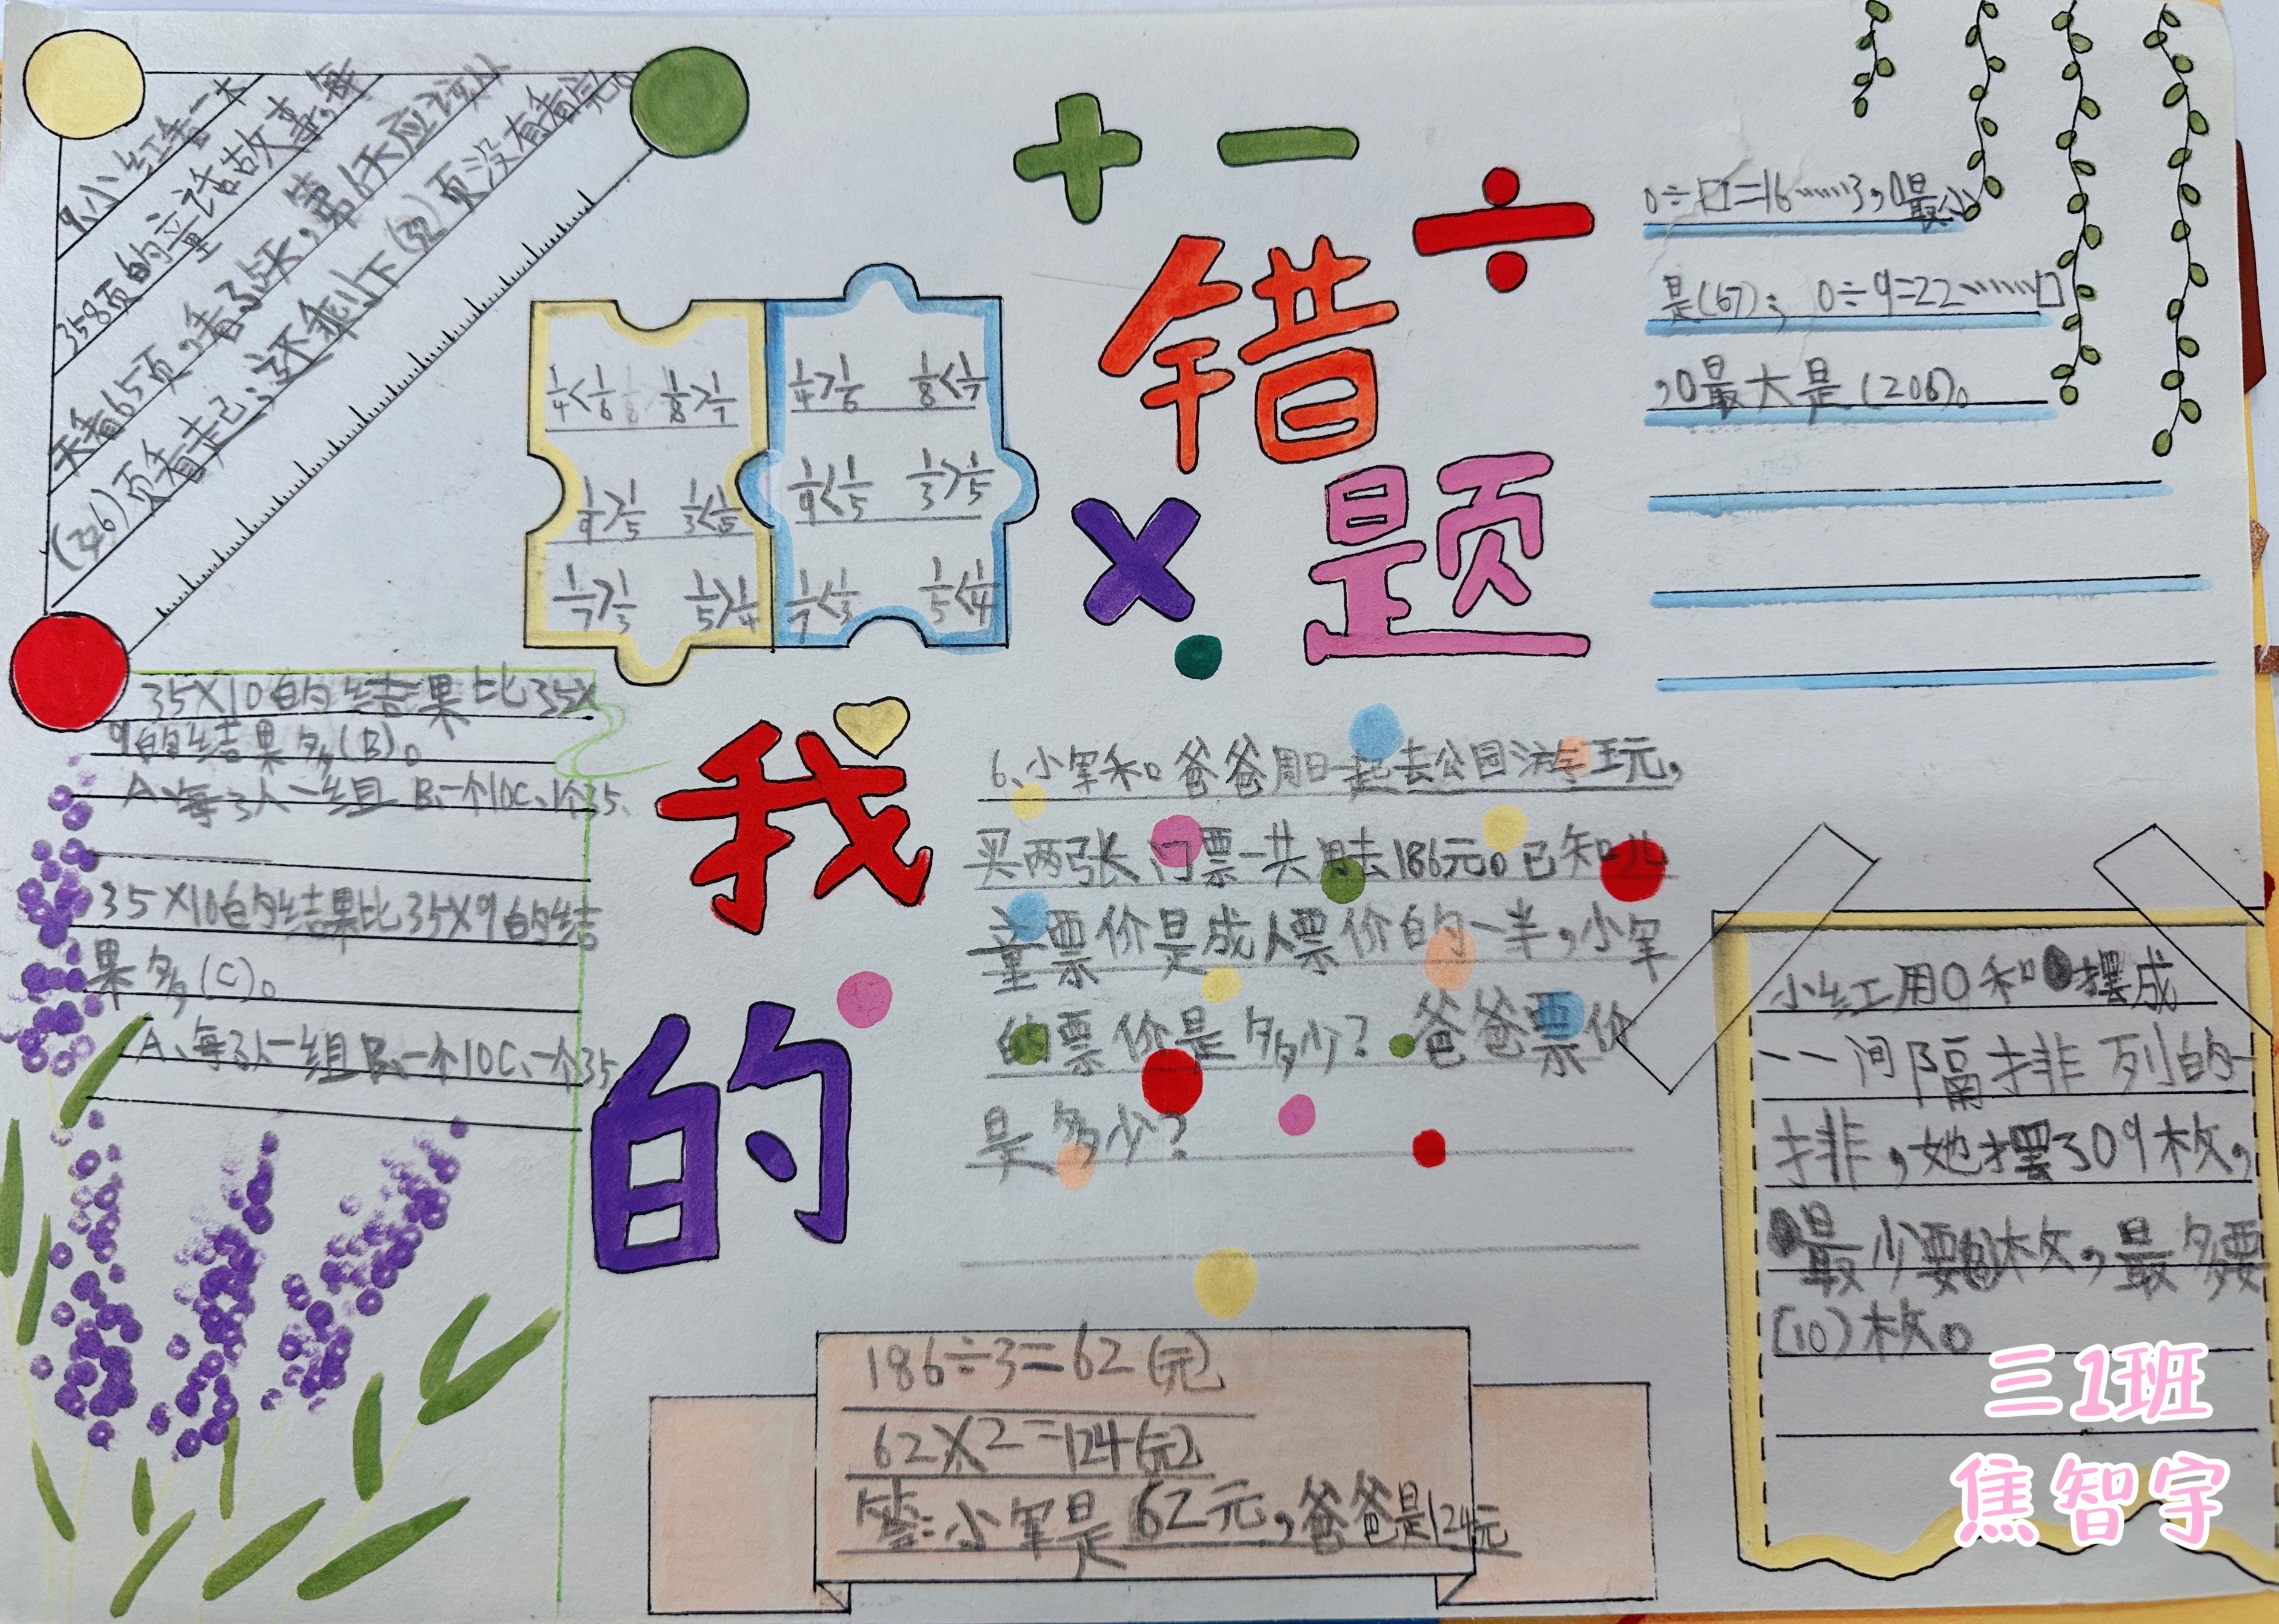 9、小红看一本
358页的童话故事,每
天看65页,看了5天,第6天应该从
(326)页看起;还剩下(32)页没有看完。
+ - ÷ ×
我的
错题
1/4<1/6 1/8>1/7
1/9>1/5 1/3<1/5
1/7>1/3 1/5>1/4
1/4>1/6 1/8<1/7
1/9<1/5 1/3>1/5
1/7<1/3 1/5<1/4
0÷口=16……3,0最小
是(67); 0÷9=22……口
,0最大是(206)。
35×10的结果比35×
9的结果多(B)。
A、每3人一组 B、一个10 C、1个35、
35×10的结果比35×9的结
果多(C)。
A、每3人一组 B、一个10 C、一个35
6、小军和爸爸周日一起去公园游玩,
买两张门票一共用去186元。已知儿
童票价是成人票价的一半,小军
的票价是多少? 爸爸票价
是多少?
186÷3=62(元)
62×2=124(元)
答:小军是62元,爸爸是124元
小红用○和●摆成
一一间隔排列的一
排,她摆了○9枚,
●最少要枚,最多要
(10)枚。
三1班
焦智宇